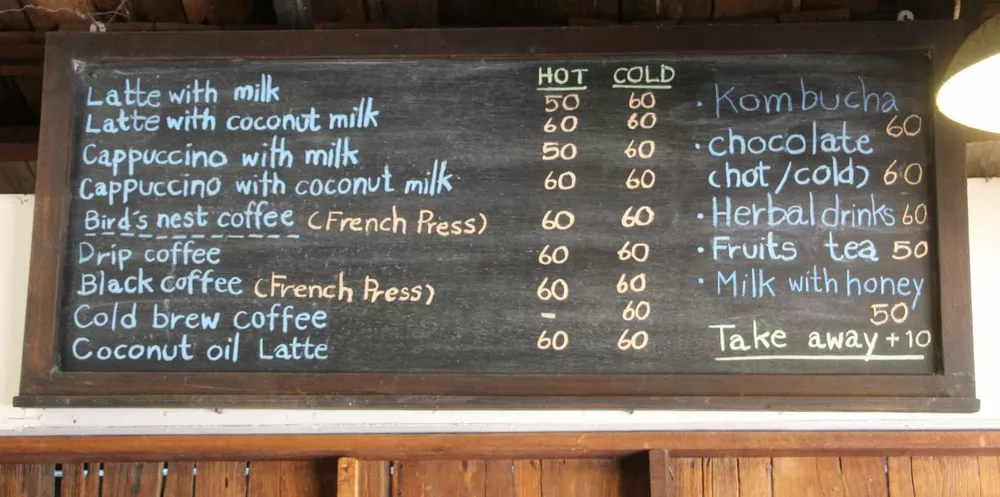 HOT COLD
Latte with milk 50 60
Latte with coconut milk 60 60
Cappuccino with milk 50 60
Cappuccino with coconut milk 60 60
Bird's nest coffee (French Press) 60 60
Drip coffee 60 60
Black coffee (French Press) 60 60
Cold brew coffee - 60
Coconut oil Latte 60 60
· Kombucha
60
· chocolate
(hot/cold) 60
· Herbal drinks 60
· Fruits tea 50
· Milk with honey
50
Take away + 10